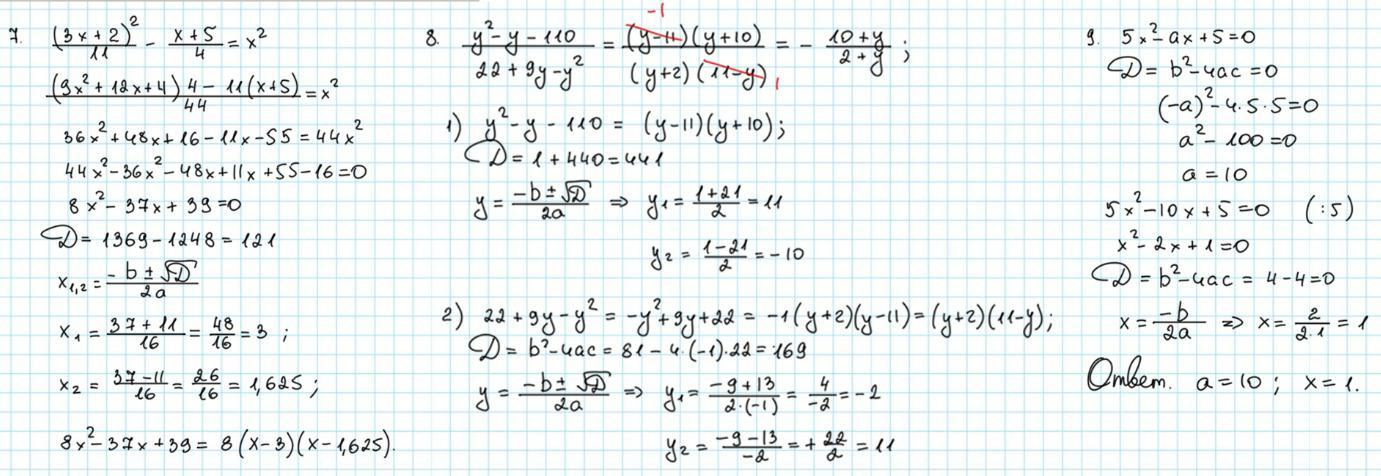 7. (3x+2)²/11 - (x+5)/4 = x²
((9x²+12x+4)4 - 11(x+5))/44 = x²
36x²+48x+16-11x-55=44x²
44x²-36x²-48x+11x+55-16=0
8x²-37x+39=0
D=1369-1248=121
x₁,₂=(-b±√D)/2a
x₁=(37+11)/16=48/16=3;
x₂=(37-11)/16=26/16=1,625;
8x²-37x+39=8(x-3)(x-1,625).
8. (y²-y-110)/(22+9y-y²) = ((y-11)(y+10))/((y+2)(11-y)) = -(10+y)/(2+y);
-1
1
1) y²-y-110=(y-11)(y+10);
D=1+440=441
y=(-b±√D)/2a ⇒ y₁=(1+21)/2=11
y₂=(1-21)/2=-10
2) 22+9y-y²=-y²+9y+22=-1(y+2)(y-11)=(y+2)(11-y);
D=b²-4ac=81-4·(-1)·22=169
y=(-b±√D)/2a ⇒ y₁=(-9+13)/(2·(-1))=4/-2=-2
y₂=(-9-13)/-2=+22/2=11
9. 5x²-ax+5=0
D=b²-4ac=0
(-a)²-4·5·5=0
a²-100=0
a=10
5x²-10x+5=0 (:5)
x²-2x+1=0
D=b²-4ac=4-4=0
x=-b/2a ⇒ x=2/(2·1)=1
Ответ. a=10; x=1.